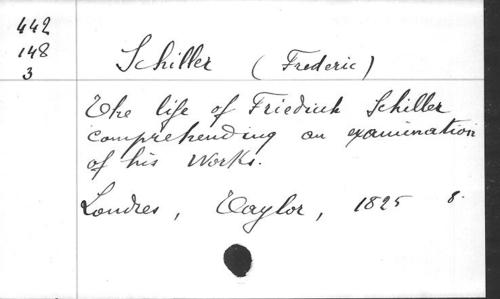 442
148
3
Schiller (Frederic)
The life of Friedrich Schiller
comprehending an examination
of his Works.
Londres, Taylor, 1825 8.